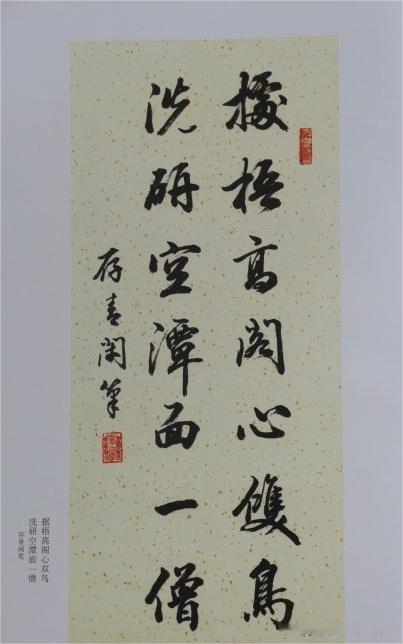 據梧高閣心雙鳥
洗研空潭面一僧
存青閑筆
据梧高阁心双鸟
洗研空潭面一僧
存青闲笔